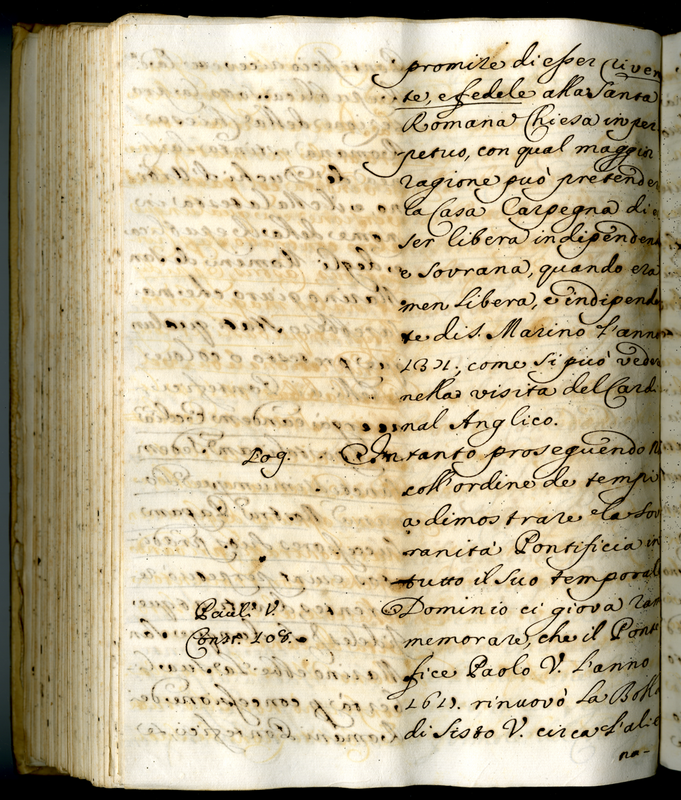 promise di esser riveren
te, e fedele alla Santa
Romana Chiesa in per
petuo, con qual maggior
ragione può pretender
la Casa Carpegna di es
ser libera indipendent
e Sovrana, quando era
men libera, e indipenden
te di S. Marino l'anno
1371. come si può veder
nella visita del Cardi
nal Anglico.
Log.
Intanto proseguendo
coll'ordine de tempi
a dimostrare la Sov
ranità Pontificia in
tutto il suo temporal
Paul. V.
Dominio ci giova ram
Const. 108.
memorare, che il Ponte
fice Paolo V. l'anno
rinuovò la Bolla
di Sisto V. circa l'alie
na-